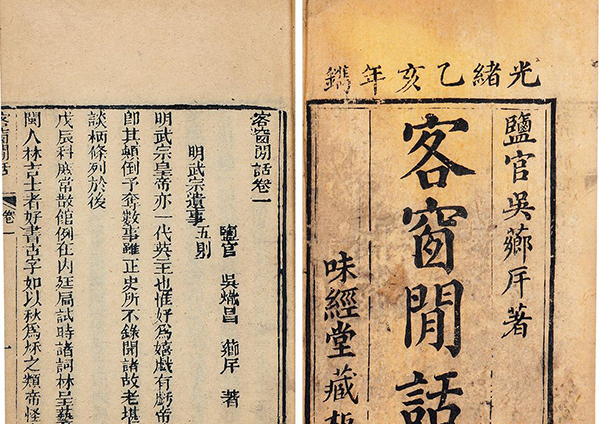 光緒乙亥年鐫
鹽官吳薌厈著
客窗閒話
味經堂藏板
客窗閒話卷一
明武宗遺事五則
鹽官 吳熾昌 薌厈 著
明武宗皇帝亦一代英主也惟好為嬉戲有虧帝
即其顛倒予奪數事雖正史所不錄聞諸故老堪
談柄條列於後
戊辰科庶常散館例在內廷扃試時諸詞林呈藝
閩人林吉士者好書古字如以秋為秌之類帝怪
客窗閒話 卷一 一